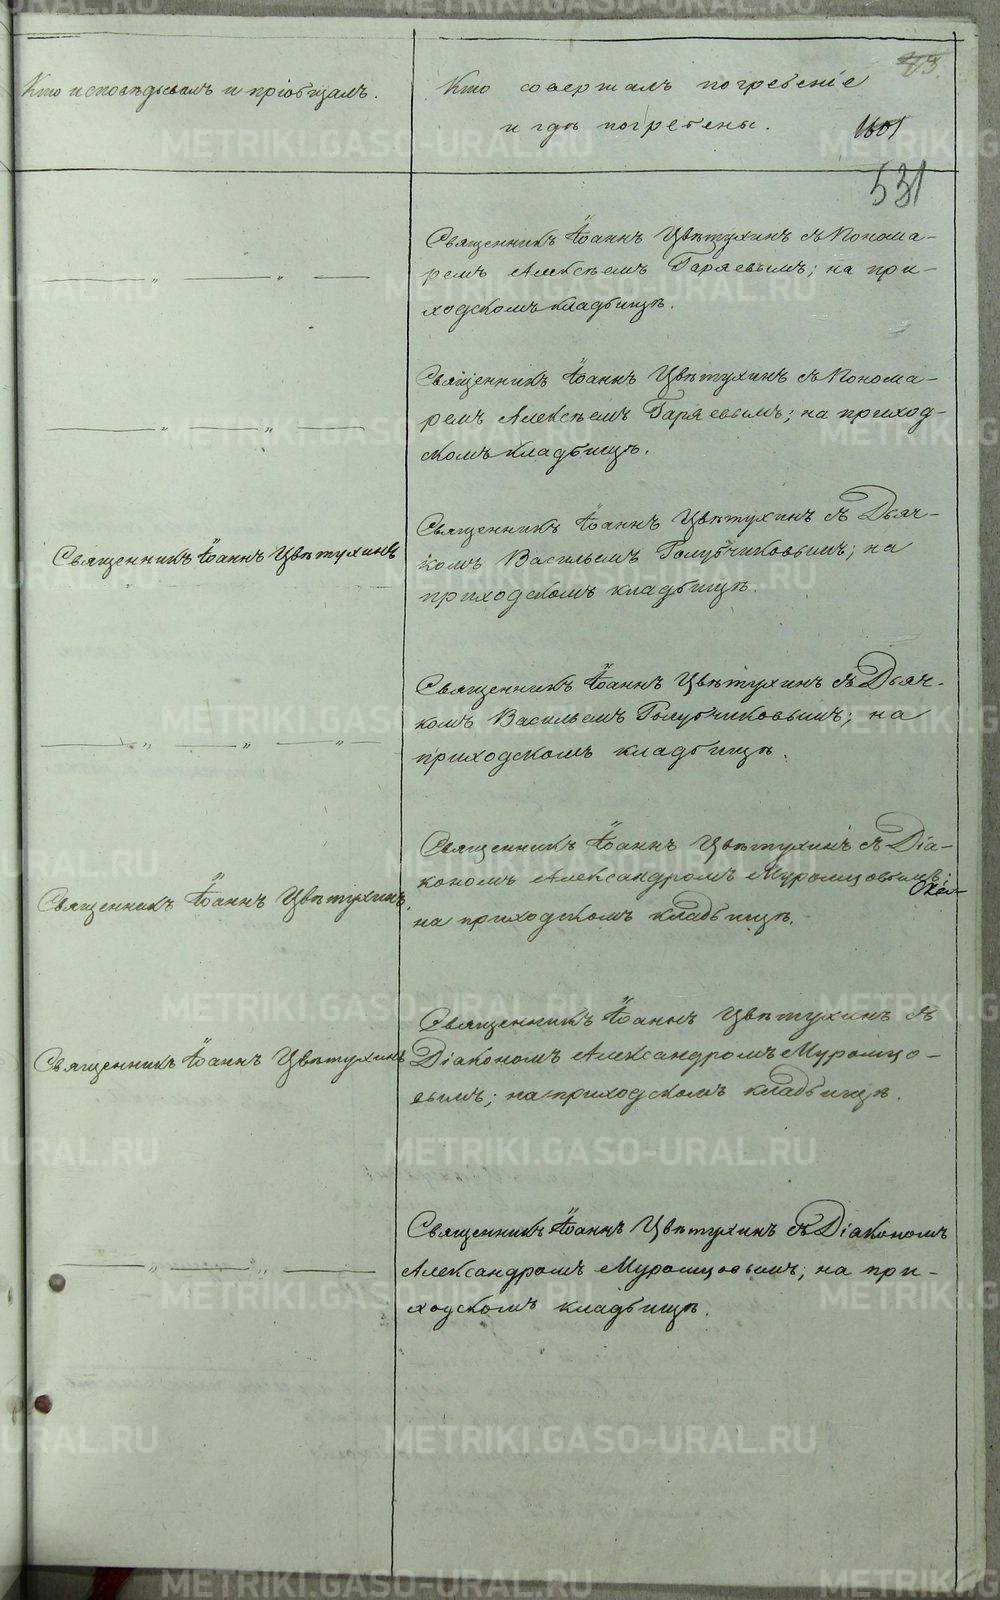 Кто исповѣдывалъ и пріобщалъ.
Кто совершалъ погребеніе
и гдѣ погребены.
531
Священникъ Іоаннъ Цвѣтухинъ съ Понома-
ремъ Алексѣемъ Гаряевымъ; на при-
ходскомъ кладбищѣ.
— " — " —
Священникъ Іоаннъ Цвѣтухинъ съ Понома-
ремъ Алексѣемъ Гаряевымъ; на приход-
скомъ кладбищѣ.
— " — " —
Священникъ Іоаннъ Цвѣтухинъ
Священникъ Іоаннъ Цвѣтухинъ съ Дьяч-
комъ Васильемъ Голубчиковымъ; на
приходскомъ кладбищѣ.
Священникъ Іоаннъ Цвѣтухинъ съ Дьяч-
комъ Васильемъ Голубчиковымъ; на
приходскомъ кладбищѣ.
— " — " — " —
Священникъ Іоаннъ Цвѣтухинъ.
Священникъ Іоаннъ Цвѣтухинъ съ Діа-
кономъ Александромъ Муромцовымъ;
на приходскомъ кладбищѣ.
Священникъ Іоаннъ Цвѣтухинъ
Священникъ Іоаннъ Цвѣтухинъ съ
Діакономъ Александромъ Муромцо-
вымъ; на приходскомъ кладбищѣ.
Священникъ Іоаннъ Цвѣтухинъ съ Діакономъ
Александромъ Муромцовымъ; на при-
ходскомъ кладбищѣ.
— " — " —
METRIKI.GASO-URAL.RU